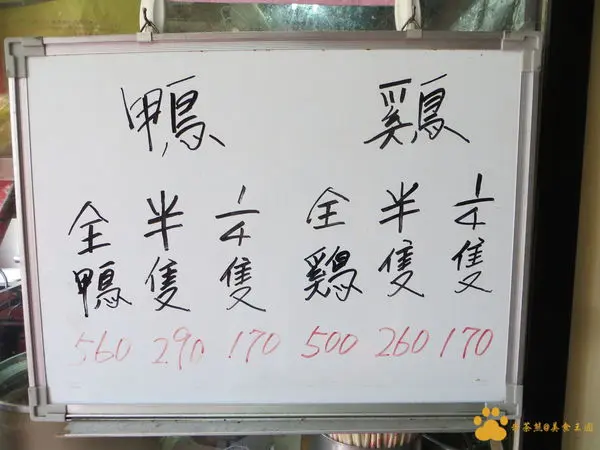 鴨 鷄
全鴨 半隻 1/4隻 全鷄 半隻 1/4隻
560 290 170 500 260 170
茶熊@美食王國